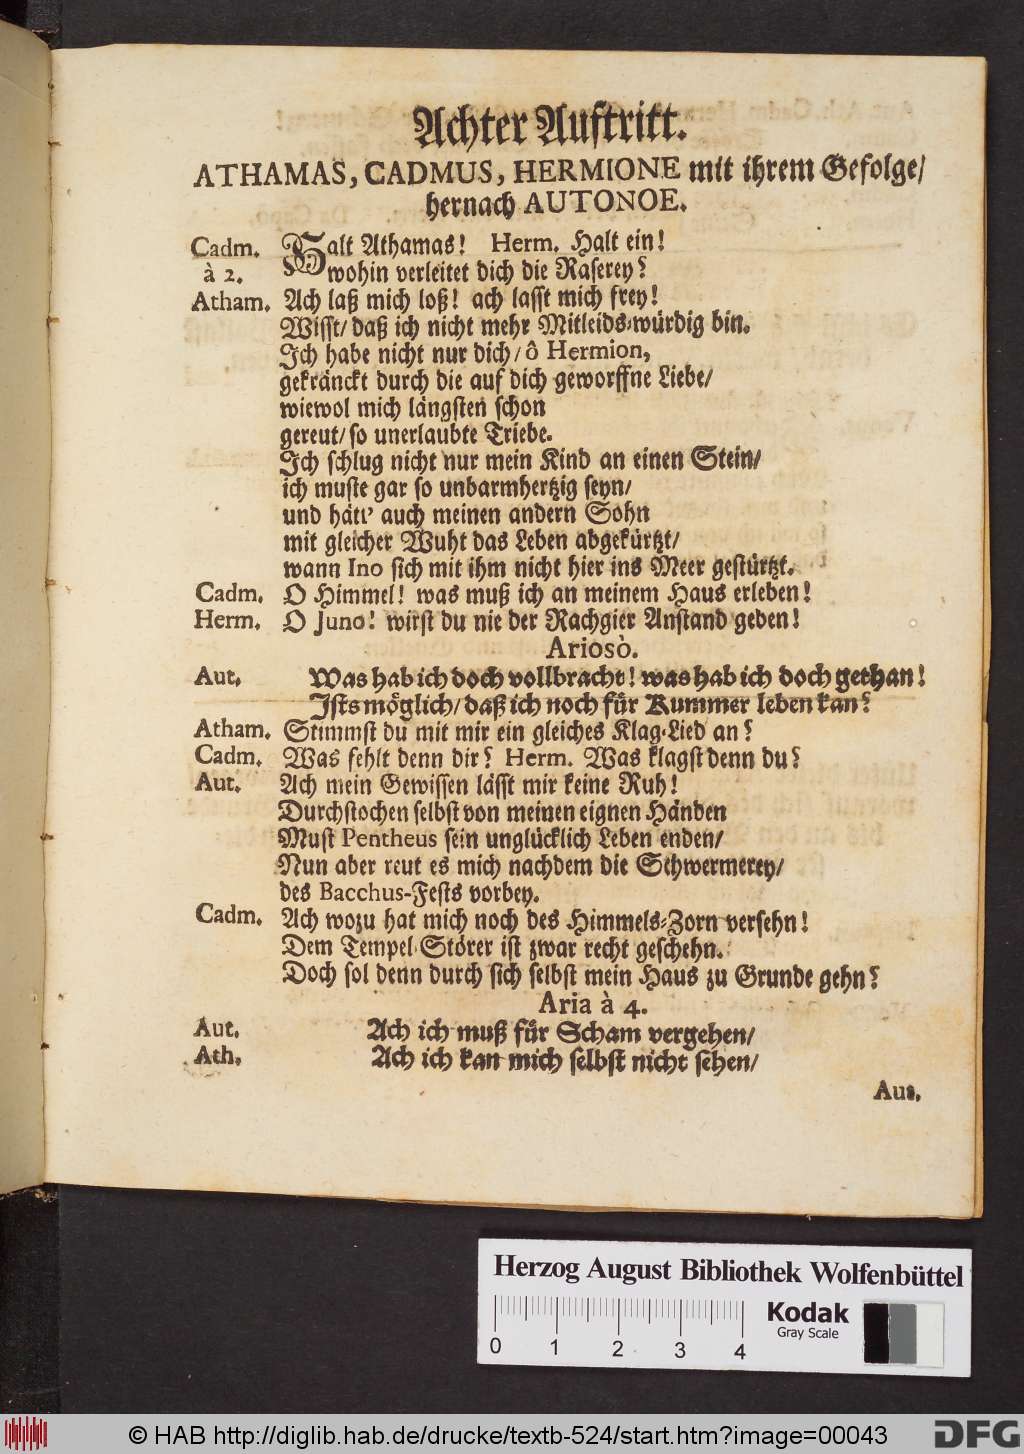 Achter Auftritt.
ATHAMAS, CADMUS, HERMIONE mit ihrem Gefolge/
hernach AUTONOE.
Cadm. Halt Athamas! Herm. Halt ein!
à 2. wohin verleitet dich die Raserey?
Atham. Ach laß mich loß! ach lasst mich frey!
Wisst/ daß ich nicht mehr Mitleids-würdig bin.
Ich habe nicht nur dich/ ô Hermion,
gekränckt durch die auf dich geworffne Liebe/
wiewol mich längsten schon
gereut/ so unerlaubte Triebe.
Ich schlug nicht nur mein Kind an einen Stein/
ich muste gar so unbarmhertzig seyn/
und hätt' auch meinen andern Sohn
mit gleicher Wuht das Leben abgekürtzt/
wann Ino sich mit ihm nicht hier ins Meer gestürtzt.
Cadm. O Himmel! was muß ich an meinem Haus erleben!
Herm. O Juno! wirst du nie der Rachgier Anstand geben!
Ariosò.
Aut. Was hab ich doch vollbracht! was hab ich doch gethan!
Ists möglich/ daß ich noch für Kummer leben kan?
Atham. Stimmst du mit mir ein gleiches Klag-Lied an?
Cadm. Was fehlt denn dir? Herm. Was klagst denn du?
Aut. Ach mein Gewissen lässt mir keine Ruh!
Durchstochen selbst von meinen eignen Händen
Must Pentheus sein unglücklich Leben enden/
Nun aber reut es mich nachdem die Schwermerey/
des Bacchus-Fests vorbey.
Cadm. Ach wozu hat mich noch des Himmels-Zorn versehn!
Dem Tempel-Störer ist zwar recht geschehn.
Doch sol denn durch sich selbst mein Haus zu Grunde gehn?
Aria à 4.
Aut. Ach ich muß für Scham vergehen/
Ath. Ach ich kan mich selbst nicht sehen/
Aus.
Herzog August Bibliothek Wolfenbüttel
Kodak
Gray Scale
0 1 2 3 4
© HAB http://diglib.hab.de/drucke/textb-524/start.htm?image=00043
DFG